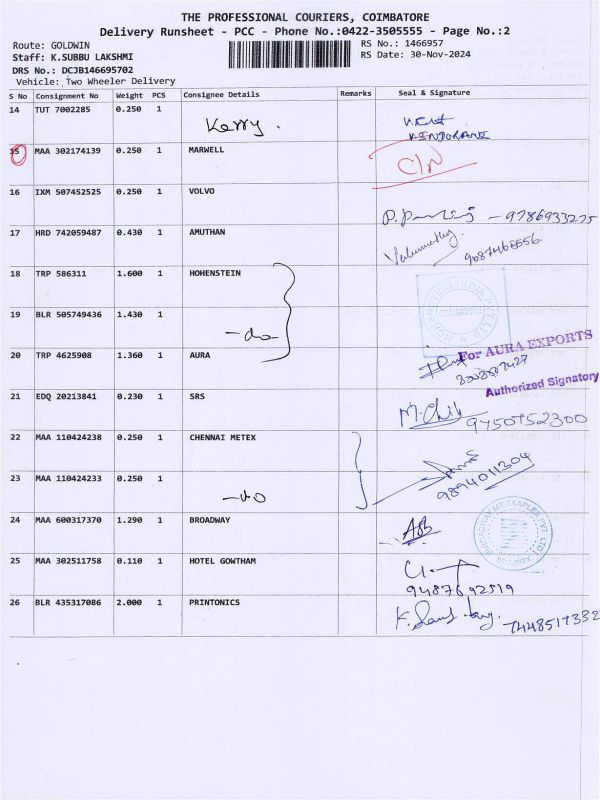 THE PROFESSIONAL COURIERS, COIMBATORE
Delivery Runsheet - PCC - Phone No.:0422-3505555 - Page No.:2
Route: GOLDWIN
RS No.: 1466957
Staff: K.SUBBU LAKSHMI
RS Date: 30-Nov-2024
DRS No.: DCJB146695702
Vehicle: Two Wheeler Delivery
S No Consignment No Weight PCS Consignee Details Remarks Seal & Signature
14 TUT 7002285 0.250 1 Kerry.
15 MAA 302174139 0.250 1 MARWELL
16 IXM 507452525 0.250 1 VOLVO - 9786933275
17 HRD 742059487 0.430 1 AMUTHAN
18 TRP 586311 1.600 1 HOHENSTEIN
HOHENSTEIN INDIA PVT LTD
COIMBATORE
19 BLR 505749436 1.430 1 -do
20 TRP 4625908 1.360 1 AURA
For AURA EXPORTS
Authorized Signatory
21 EDQ 20213841 0.230 1 SRS 9750752300
22 MAA 110424238 0.250 1 CHENNAI METEX
23 MAA 110424233 0.250 1 -do 9894011304
24 MAA 600317370 1.290 1 BROADWAY
25 MAA 302511758 0.110 1 HOTEL GOWTHAM
9487692519
26 BLR 435317086 2.000 1 PRINTONICS